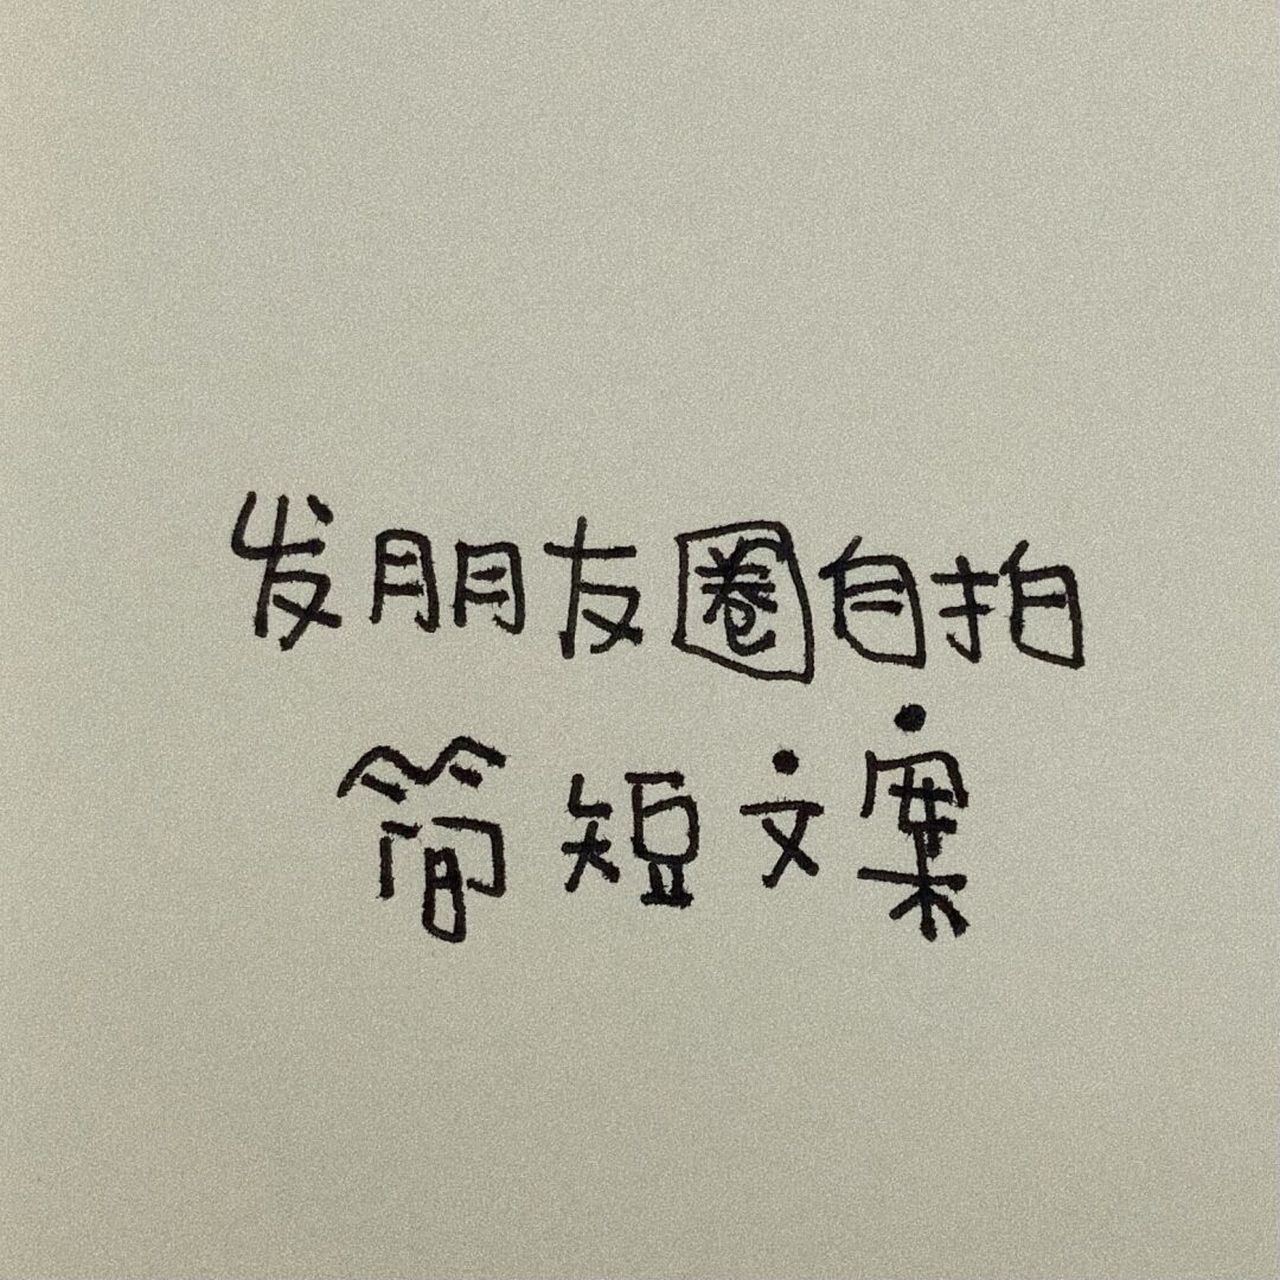 发朋友圈自拍
简短文案